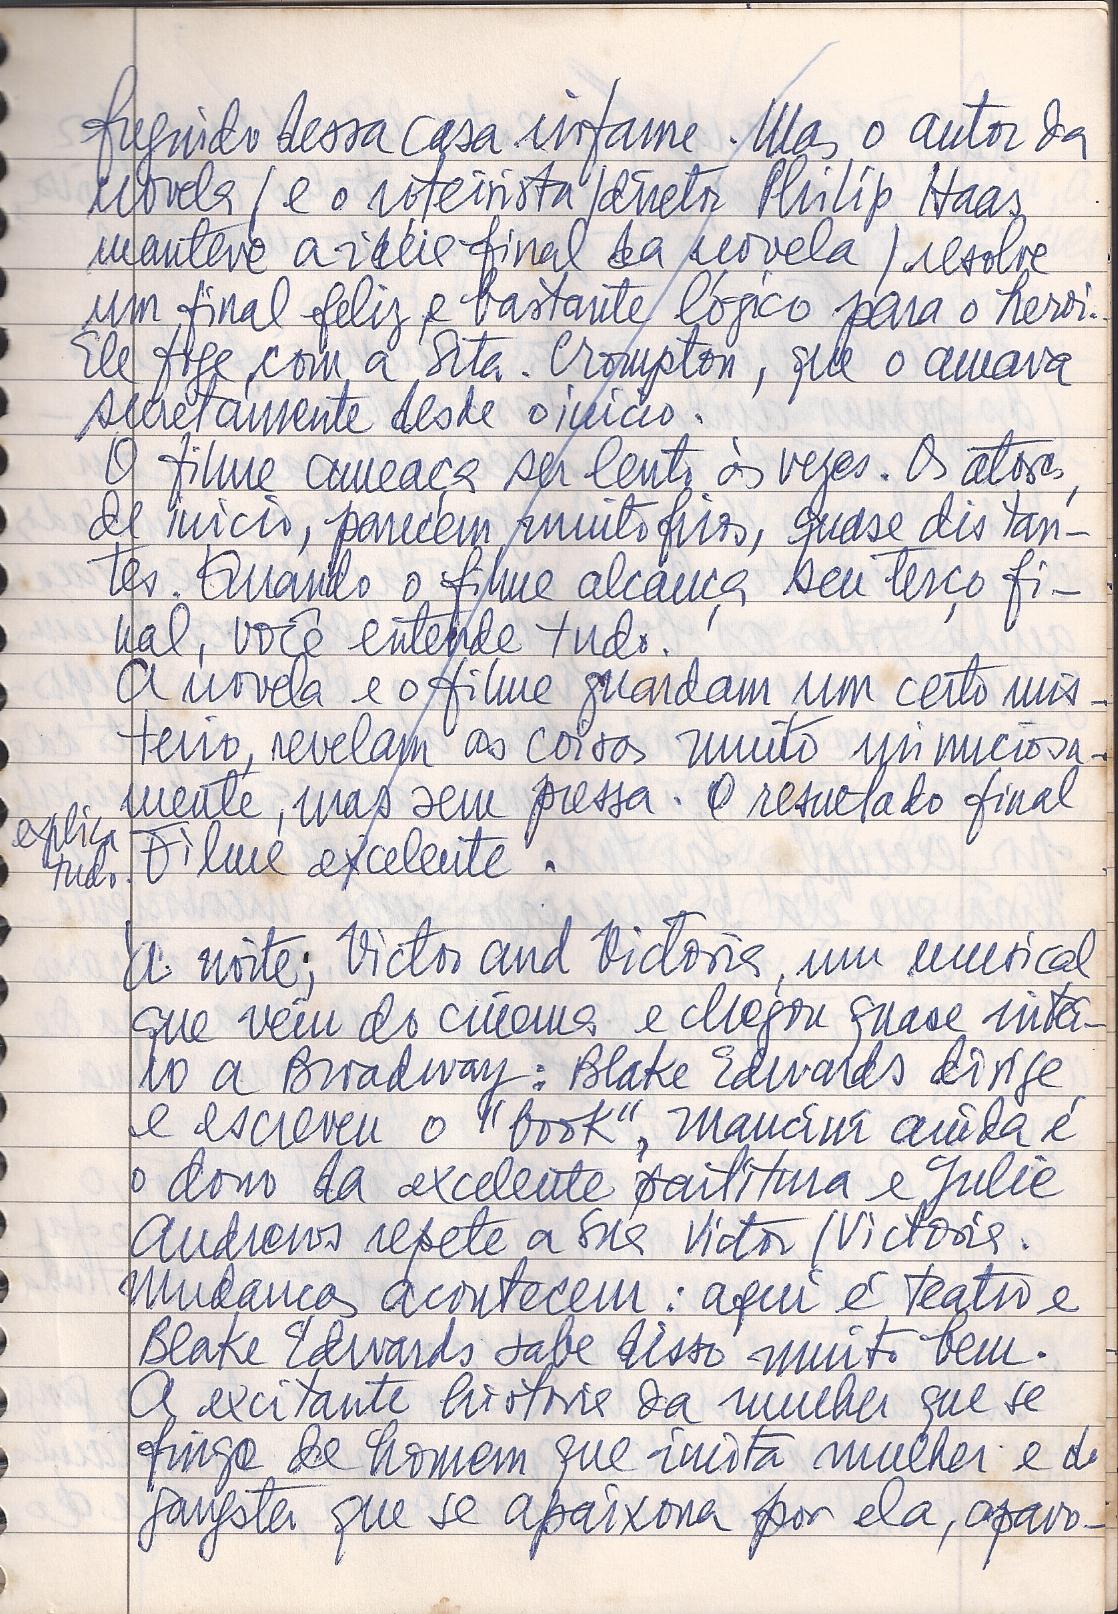 fugindo dessa casa infame. Mas o autor da
novela / e o roteirista/diretor Philip Haas
manteve a idéia final da novela / resolve
um final feliz e bastante lógico para o heroi.
Ele foge com a Srta. Crompton, que o amava
secretamente desde o início.
O filme ameaça ser lento às vezes. Os atores,
de início, parecem muito frios, quase distan-
tes. Quando o filme alcança seu terço fi-
nal, você entende tudo.
A novela e o filme guardam um certo mis-
terio, revelam as coisas muito minuciosa-
mente, mas sem pressa. O resultado final
explica
tudo. Filme excelente.
À noite; Victor and Victoria, um musical
que vem do cinema e chegou quase intac-
to a Broadway: Blake Edwards dirige
e escreveu o "book", Mancini ainda é
o dono da excelente partitura e Julie
Andrews repete a sua Victor/Victoria.
Mudanças acontecem: aqui é teatro e
Blake Edwards sabe disso muito bem.
A excitante historia da mulher que se
finge de homem que imita mulher e do
gangster que se apaixona por ela, apavo-